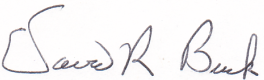 David R Buck